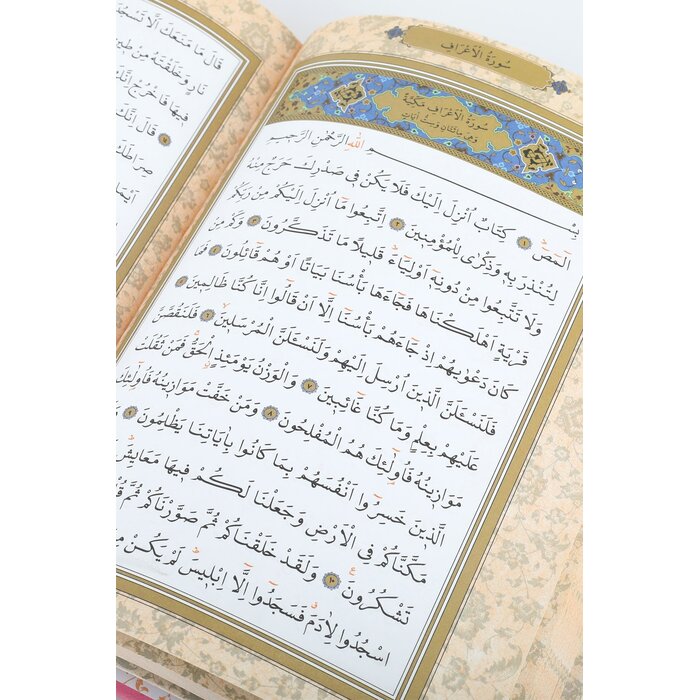 سُورَةُ الْاَعْرَافِ
سُورَةُ الْاَعْرَافِ مَكِّيَّةٌ
وَهِىَ مِائَتَانِ وَسِتُّ اٰيَاتٍ
بِسْمِ اللّٰهِ الرَّحْمٰنِ الرَّحِيمِ
الٓمٓصٓ ١ كِتَابٌ اُنْزِلَ اِلَيْكَ فَلَا يَكُنْ فِى صَدْرِكَ حَرَجٌ مِنْهُ
لِتُنْذِرَ بِهٖ وَذِكْرٰى لِلْمُؤْمِنِينَ ٢ اِتَّبِعُوا مَٓا اُنْزِلَ اِلَيْكُمْ مِنْ رَبِّكُمْ
وَلَا تَتَّبِعُوا مِنْ دُونِهٖٓ اَوْلِيَٓاءَ قَلِيلًا مَا تَذَكَّرُونَ ٣ وَكَمْ مِنْ
قَرْيَةٍ اَهْلَكْنَاهَا فَجَٓاءَهَا بَأْسُنَا بَيَاتًا اَوْ هُمْ قَٓائِلُونَ ٤ فَمَا
كَانَ دَعْوٰيهُمْ اِذْ جَٓاءَهُمْ بَأْسُنَٓا اِلَّٓا اَنْ قَالُٓوا اِنَّا كُنَّا ظَالِمِينَ ٥
فَلَنَسْـَٔلَنَّ الَّذِينَ اُرْسِلَ اِلَيْهِمْ وَلَنَسْـَٔلَنَّ الْمُرْسَلِينَ ٦ فَلَنَقُصَّنَّ
عَلَيْهِمْ بِعِلْمٍ وَمَا كُنَّا غَٓائِبِينَ ٧ وَالْوَزْنُ يَوْمَئِذٍ الْحَقُّ فَمَنْ ثَقُلَتْ
مَوَازِينُهُ فَاُولٰٓئِكَ هُمُ الْمُفْلِحُونَ ٨ وَمَنْ خَفَّتْ مَوَازِينُهُ فَاُولٰٓئِكَ
الَّذِينَ خَسِرُٓوا اَنْفُسَهُمْ بِمَا كَانُوا بِاٰيَاتِنَا يَظْلِمُونَ ٩
مَكَّنَّاكُمْ فِى الْاَرْضِ وَجَعَلْنَا لَكُمْ فِيهَا مَعَايِشَ
تَشْكُرُونَ ١٠ وَلَقَدْ خَلَقْنَاكُمْ ثُمَّ صَوَّرْنَاكُمْ ثُمَّ
اسْجُدُوا لِاٰدَمَ فَسَجَدُٓوا اِلَّٓا اِبْلِيسَ لَمْ يَكُنْ
قَالَ مَا مَنَعَكَ اَلَّا تَسْجُدَ
نَارٍ وَخَلَقْتَهُ مِنْ طِينٍ
فِيهَا فَاخْرُجْ اِنَّكَ
قَالَ اِنَّكَ
صِرَاطَكَ